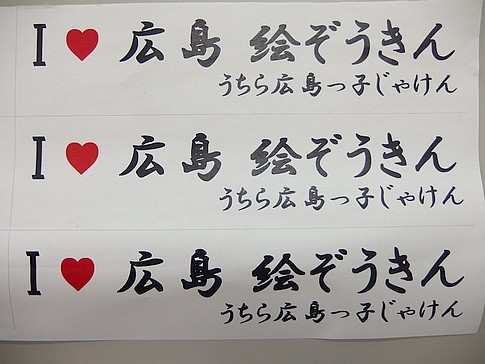 I ❤ 広島 絵ぞうきん
うちら広島っ子じゃけん
I ❤ 広島 絵ぞうきん
うちら広島っ子じゃけん
I ❤ 広島 絵ぞうきん
うちら広島っ子じゃけん